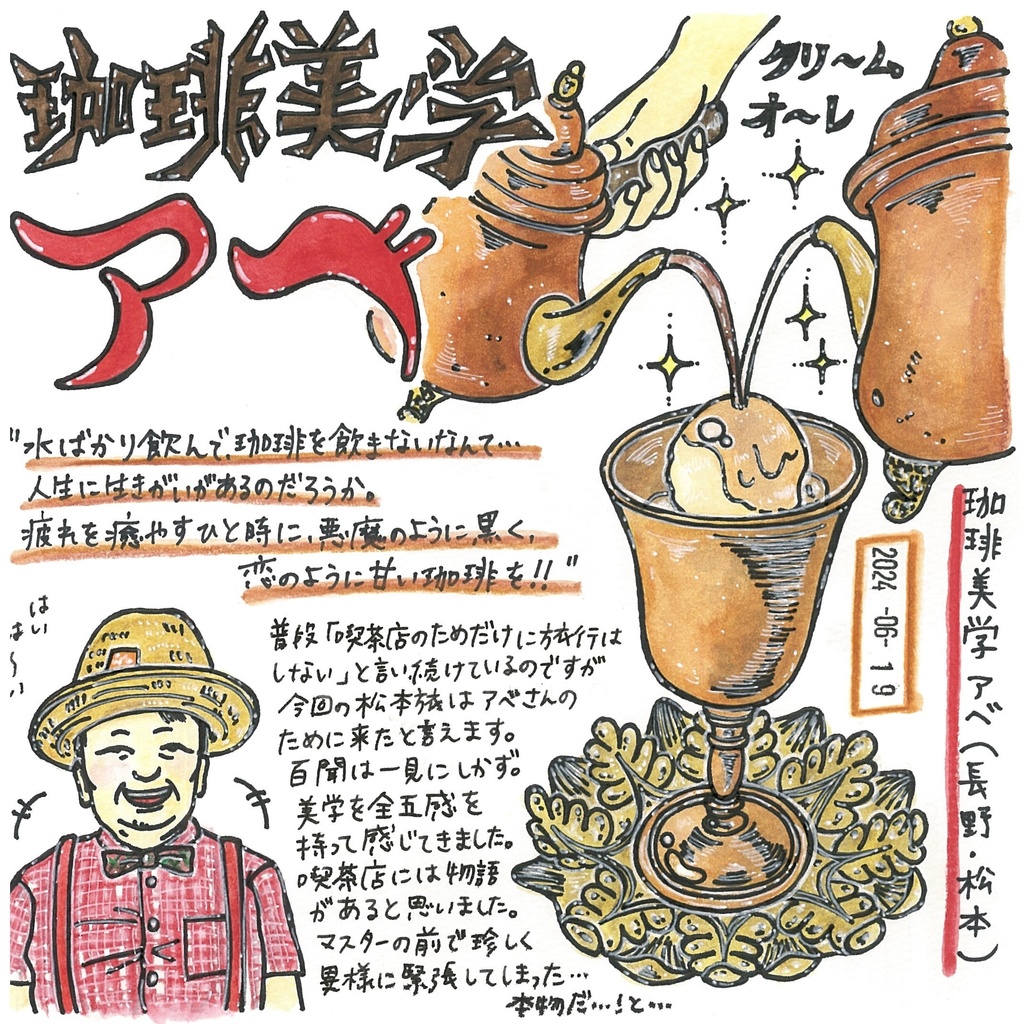 珈琲美学
アベ
クリ〜ム。
オ〜レ
"水ばかり飲んで、珈琲を飲まないなんて…
人生に生きがいがあるのだろうか。
疲れを癒やすひと時に、悪魔のように黒く、
恋のように甘い珈琲を!!"
はい
普段「喫茶店のためだけに旅行は
しない」と言い続けているのですが
今回の松本旅はアベさんの
ために来たと言えます。
百聞は一見にしかず。
美学を全五感を
持って感じてきました。
喫茶店には物語
があると思いました。
マスターの前で珍しく
異様に緊張してしまった…
本物だ…!と…
2024-06-19
珈琲美学 アベ(長野・松本)